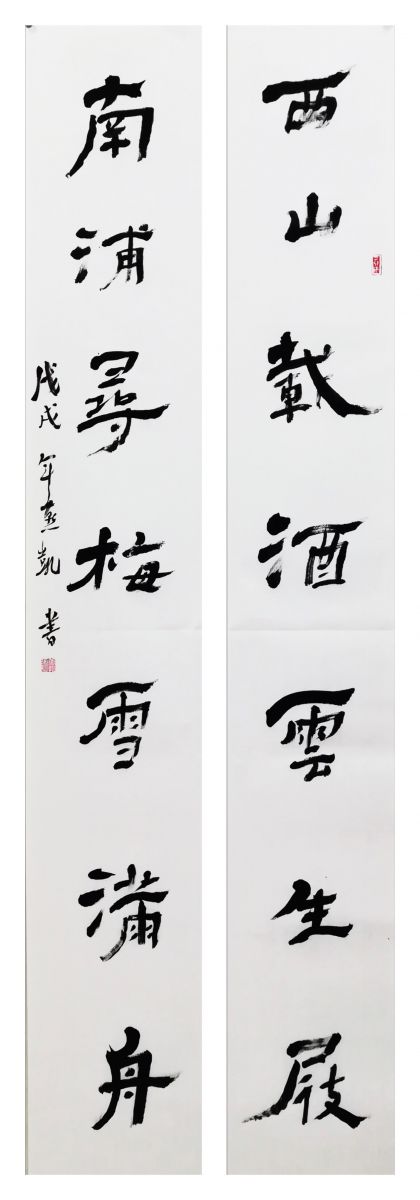 西山載酒雲生屐
南浦尋梅雪滿舟
戊戌年 凱書